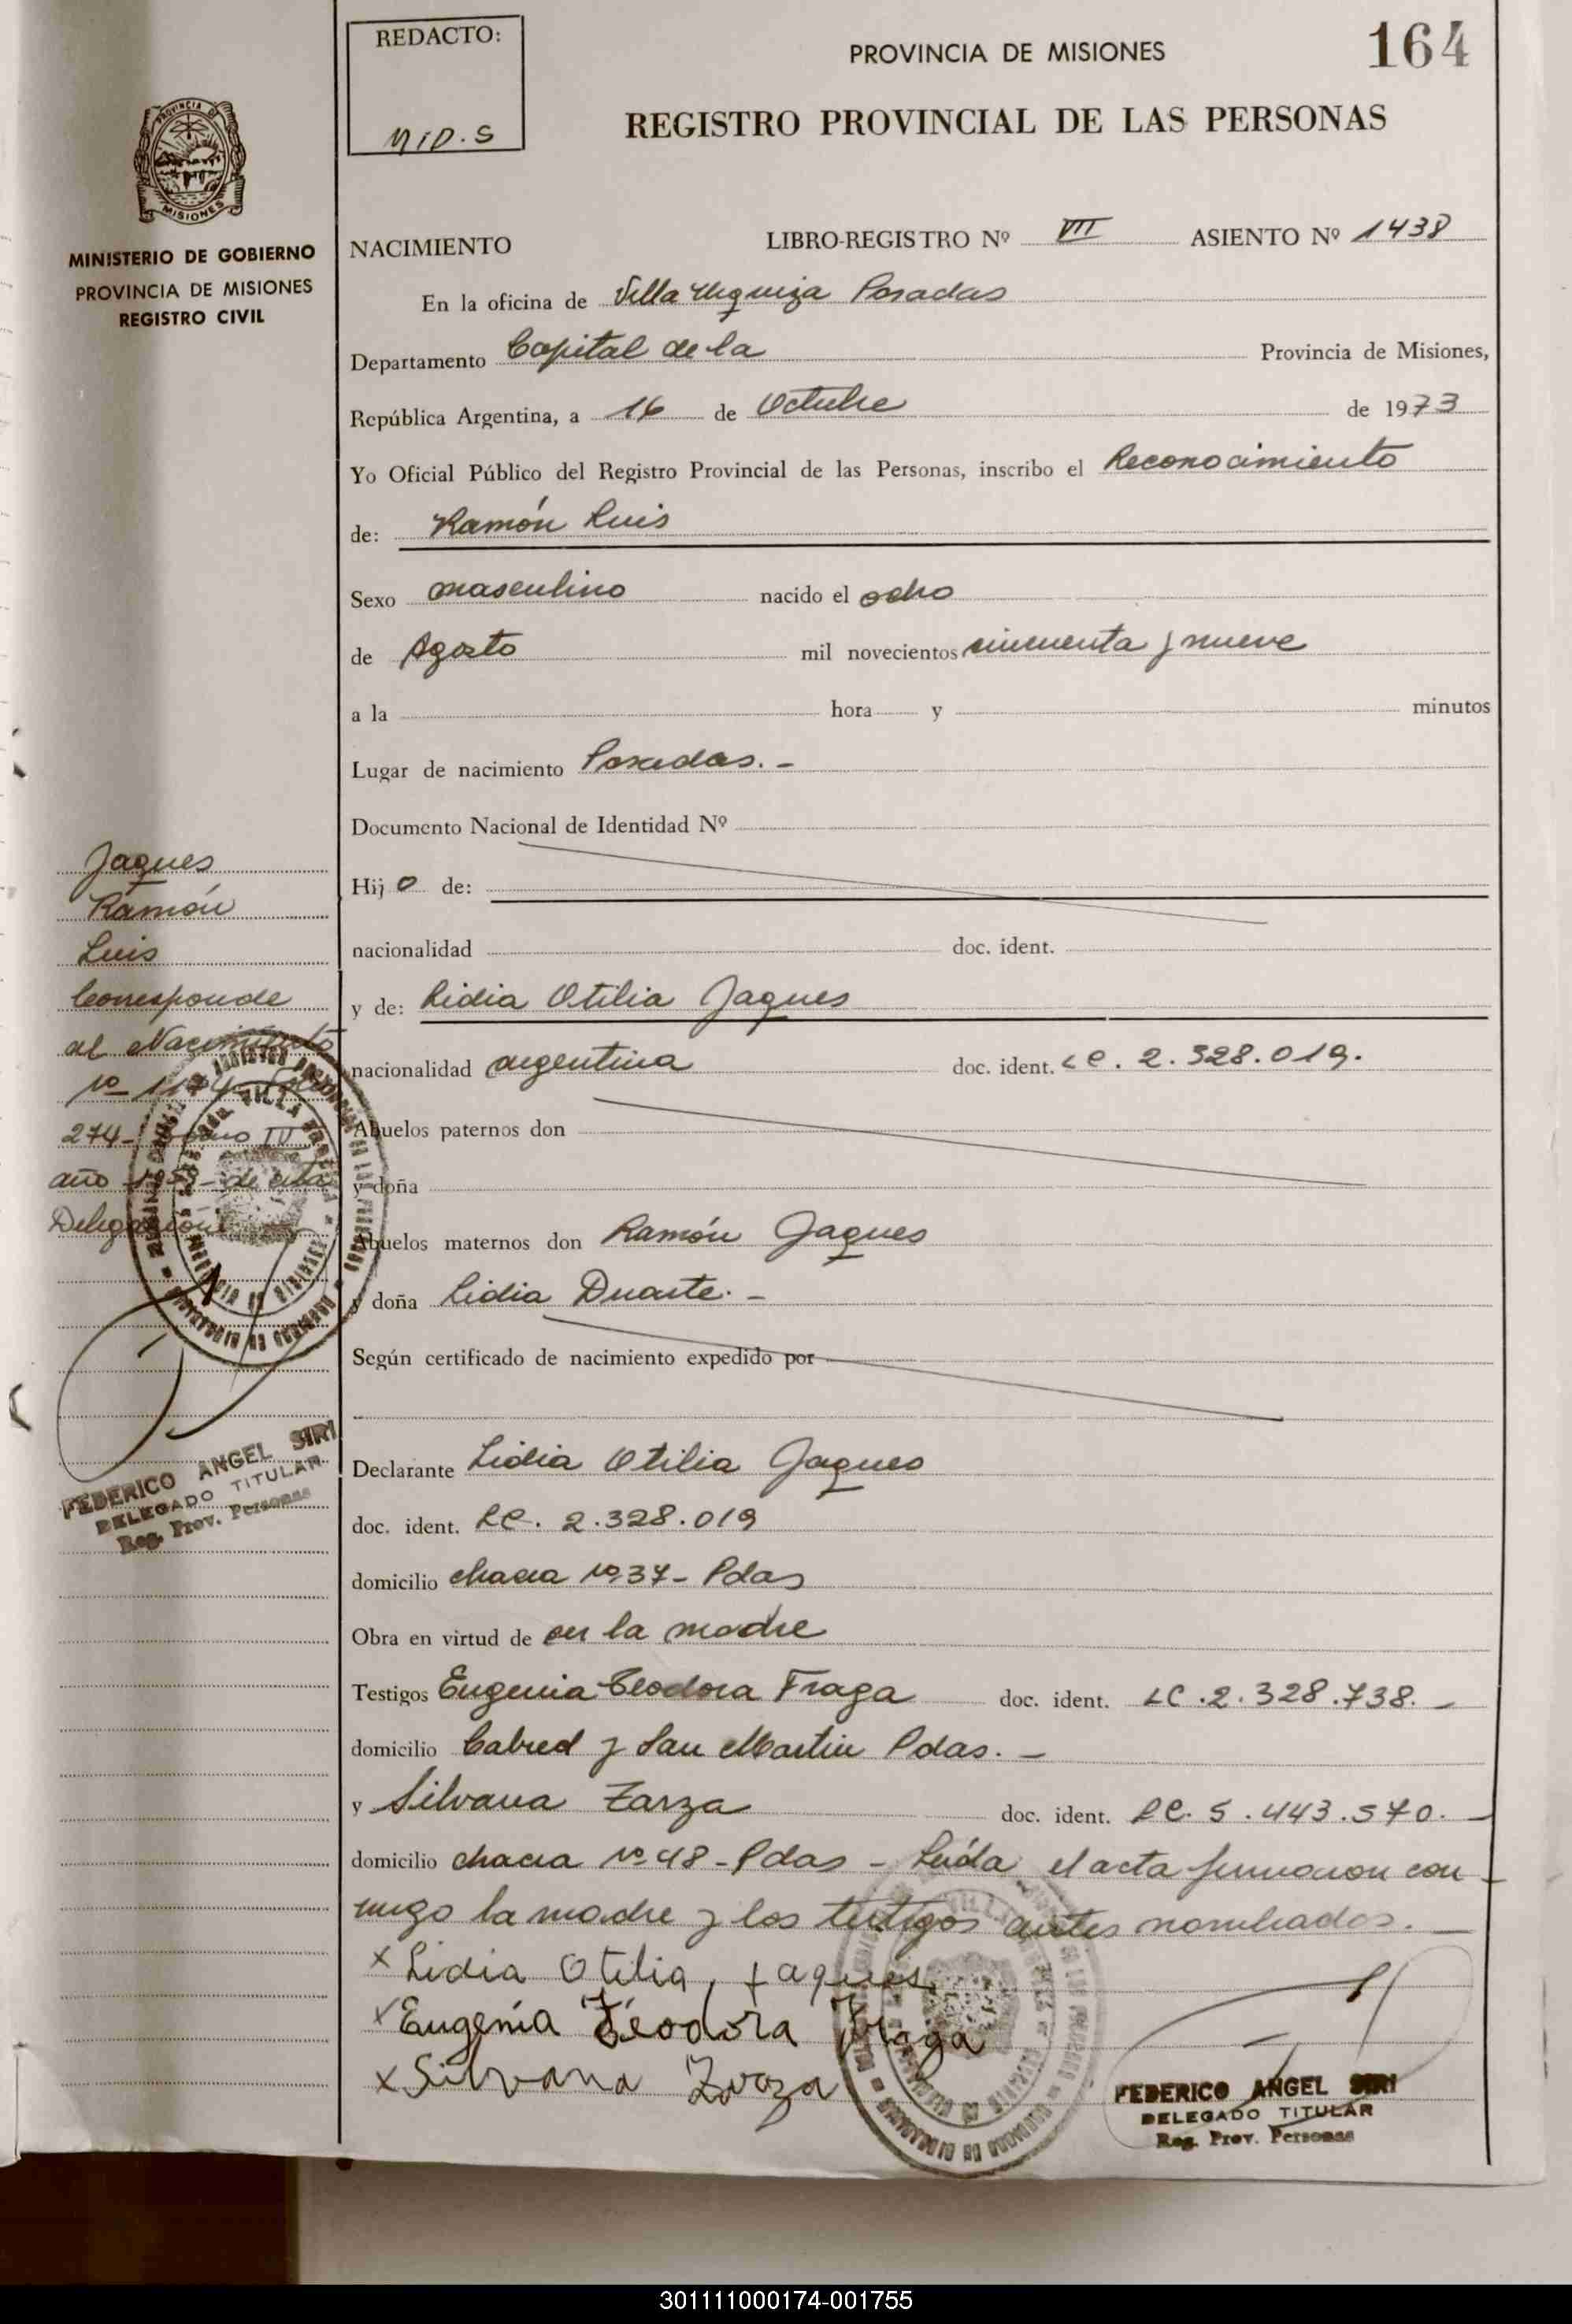 REDACTO:
PROVINCIA DE MISIONES
164
REGISTRO PROVINCIAL DE LAS PERSONAS
MISIONES
MINISTERIO DE GOBIERNO
PROVINCIA DE MISIONES
REGISTRO CIVIL
NACIMIENTO LIBRO-REGISTRO Nº VII ASIENTO Nº 1438
En la oficina de Villa Urquiza Posadas
Departamento Capital de la Provincia de Misiones,
República Argentina, a 16 de Octubre de 1973
Yo Oficial Público del Registro Provincial de las Personas, inscribo el Reconocimiento
de: Ramón Luis
Sexo masculino nacido el ocho
de Agosto mil novecientos cincuenta y nueve
a la hora y minutos
Lugar de nacimiento Posadas. -
Documento Nacional de Identidad Nº
Hijo de:
nacionalidad doc. ident.
y de: Lidia Otilia Jaques
nacionalidad argentina doc. ident. LC. 2.328.019.
Abuelos paternos don
y doña
Abuelos maternos don Ramón Jaques
y doña Lidia Duarte. -
Según certificado de nacimiento expedido por
Declarante Lidia Otilia Jaques
doc. ident. LC. 2.328.019
domicilio chacra Nº 37 - Pdas
Obra en virtud de ser la madre
Testigos Eugenia Teodora Fraga doc. ident. LC. 2.328.738. -
domicilio Cabred y San Martin Pdas. -
y Silvana Zarza doc. ident. LC. 5.443.570. -
domicilio chacra Nº 48 - Pdas - Leída el acta firmaron con-
migo la madre y los testigos antes nombrados. -
x Lidia Otilia Jaques
x Eugenia Teodora Fraga
x Silvana Zarza
FEDERICO ANGEL SIRI
DELEGADO TITULAR
Reg. Prov. Personas
Jaques
Ramón
Luis
Corresponde
al Nacimiento
Nº Folio
274 - Tomo IV
año 1959 - de esta
Delegación
FEDERICO ANGEL SIRI
DELEGADO TITULAR
Reg. Prov. Personas
301111000174-001755